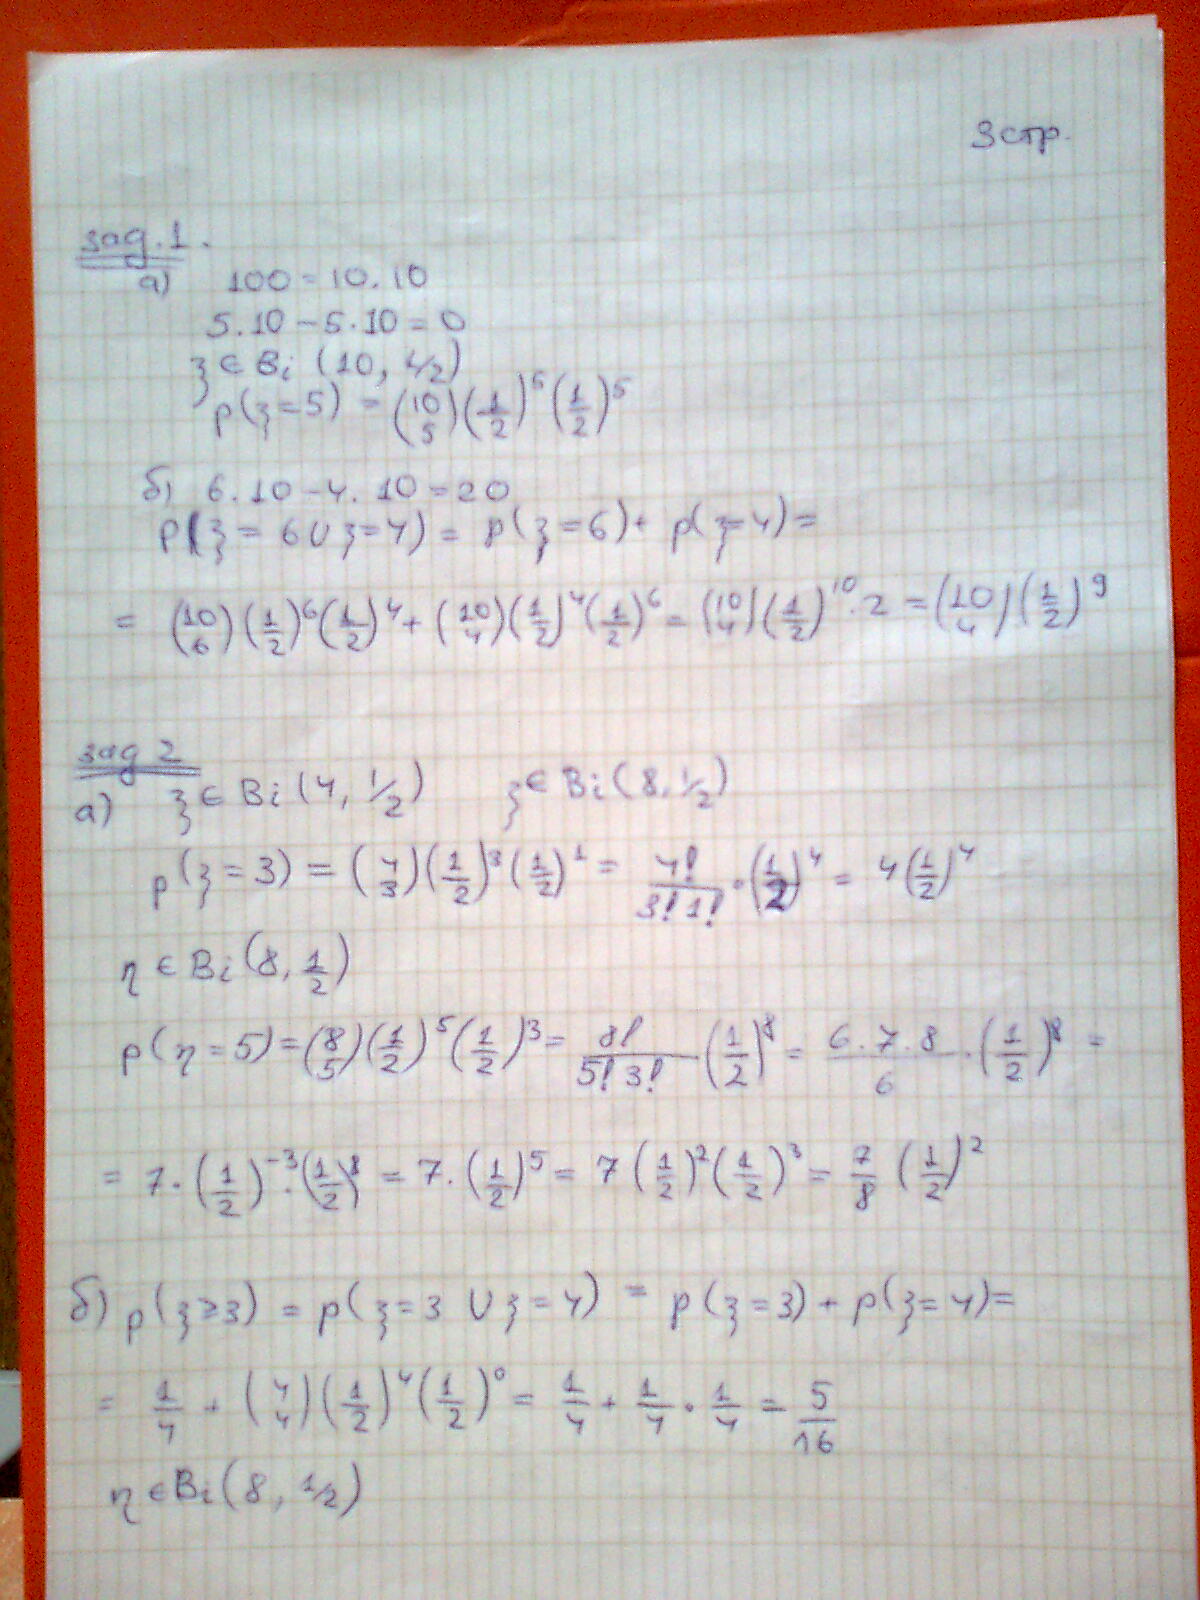 3 стр.
зад. 1.
а) 100 = 10.10
5.10 – 5.10 = 0
ξ ∈ Bi (10, 1/2)
p(ξ=5) = (10 5)(1/2)^5(1/2)^5
б) 6.10 – 4.10 = 20
P(ξ = 6 ∪ ξ = 4) = p(ξ = 6) + p(ξ = 4) =
= (10 6)(1/2)^6(1/2)^4 + (10 4)(1/2)^4(1/2)^6 = (10 4)(1/2)^10 . 2 = (10 4)(1/2)^9
зад 2
а) ξ ∈ Bi (4, 1/2) ξ ∈ Bi (8, 1/2)
p(ξ = 3) = (4 3)(1/2)^3(1/2)^1 = 4!/(3! 1!) . (1/2)^4 = 4(1/2)^4
η ∈ Bi (8, 1/2)
p(η = 5) = (8 5)(1/2)^5(1/2)^3 = 8!/(5! 3!) (1/2)^8 = 6.7.8/6 . (1/2)^8 =
= 7.(1/2)^-3 . (1/2)^8 = 7.(1/2)^5 = 7(1/2)^2(1/2)^3 = 7/8 (1/2)^2
б) p(ξ ≥ 3) = p(ξ = 3 ∪ ξ = 4) = p(ξ = 3) + p(ξ = 4) =
= 1/4 + (4 4)(1/2)^4(1/2)^0 = 1/4 + 1/4 . 1/4 = 5/16
η ∈ Bi (8, 1/2)